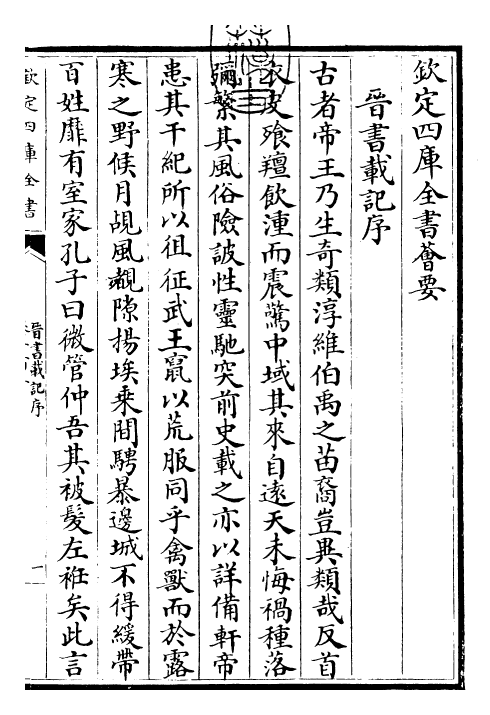 欽定四庫全書薈要
晉書載記序
古者帝王乃生奇類淳維伯禹之苗裔豈異類哉反首
衣皮飱羶飲湩而震驚中域其來自逺天未悔禍種落
彌繁其風俗險詖性靈馳突前史載之亦以詳備軒帝
患其干紀所以徂征武王竄以荒服同乎禽獸而於露
寒之野候月覘風覩隙揚埃乗間騁暴邊城不得緩帶
百姓靡有室家孔子曰微管仲吾其被髮左袵矣此言
欽定四庫全書
晉書載記序
一